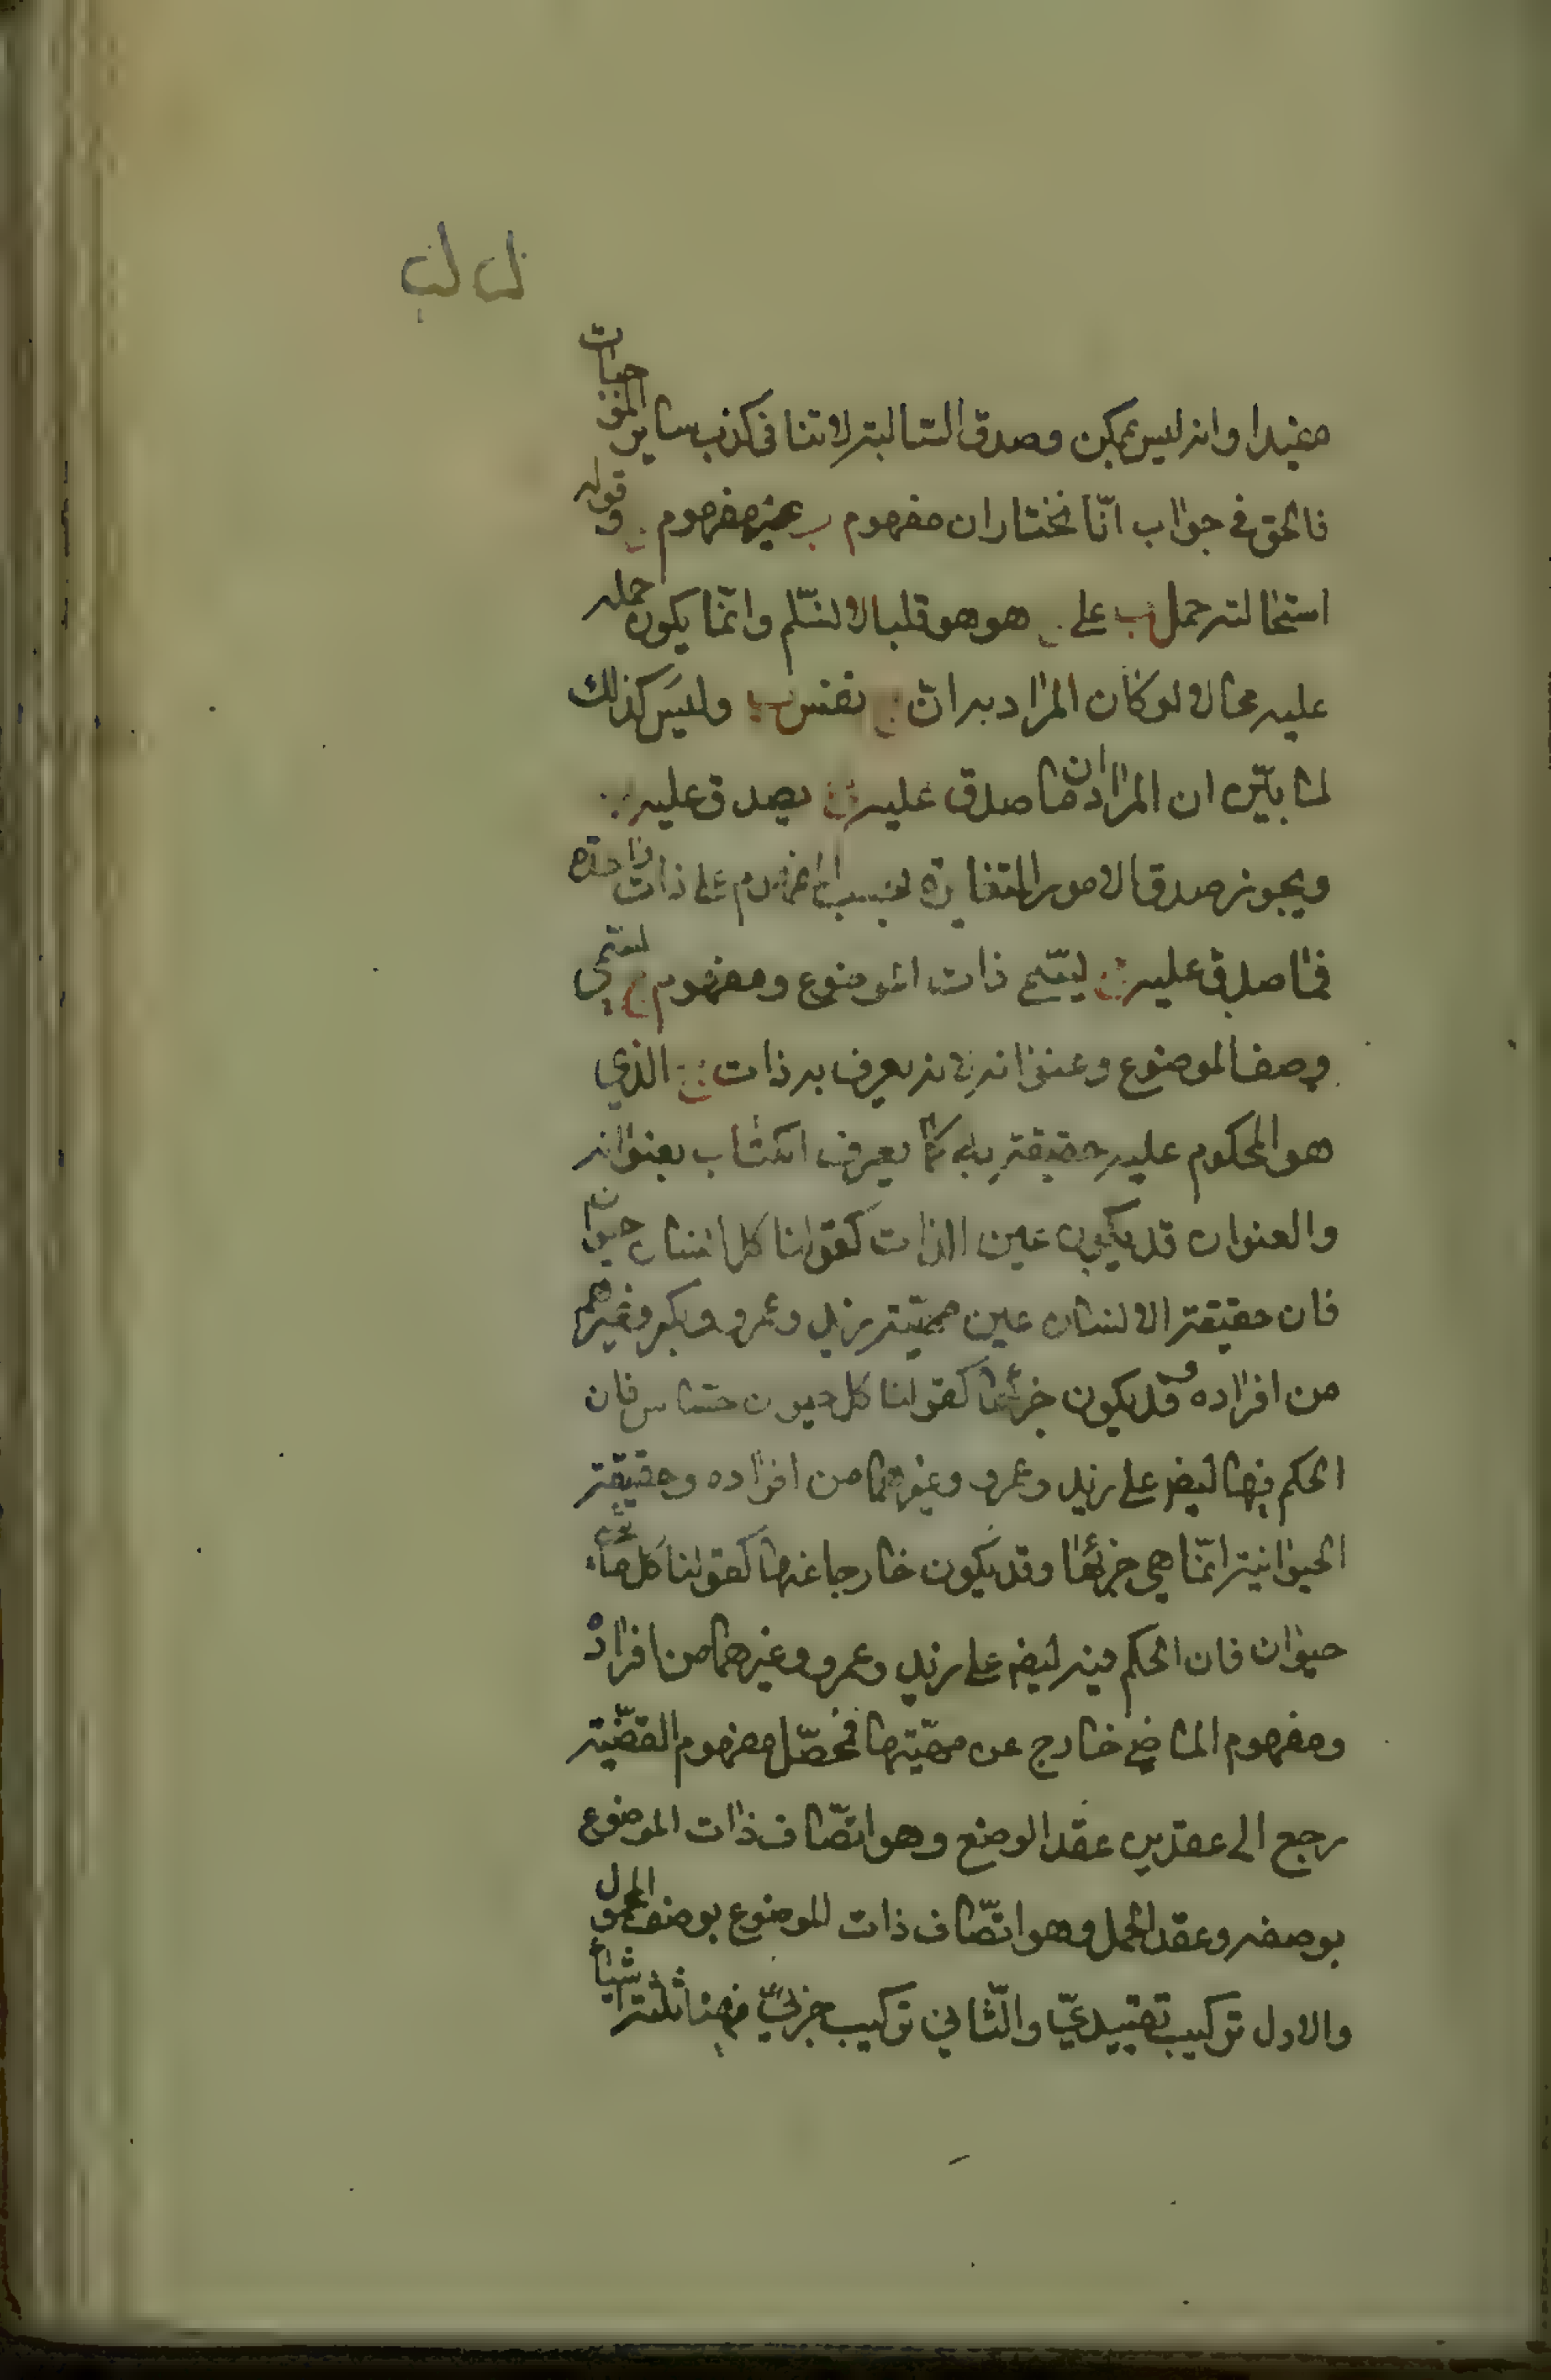 مفيدا وانه ليس بممكن وصدق السالبة لا تنافى كذب ساير الموجبات
فالحق في جوابه انّا نختار ان مفهوم ب غير مفهوم ج وقوله
استحالته حمل ب على ج هو هو قلنا لا نسلّم وانّما يكون حمله
عليه محالا لو كان المراد به ان ج نفس ب وليس كذلك
لما بيّن ان المراد ان ما صدق عليه ج يصدق عليه ب
ويجوز صدق الامور المتغايرة بحسب المفهوم على ذات واحدة
فما صدق عليه ج يسمّى ذات الموضوع ومفهوم ج يسمى
وصف الموضوع وعنوانه لانه يعرف به ذات ج الذي
هو المحكوم عليه حقيقة به كما يعرف الكتاب بعنوانه
والعنوان قد يكون عين الذات كقولنا كل انسان حيوان
فان حقيقة الانسان عين مهيّة زيد وعمرو وبكر وغيرهم
من افراده وقد يكون جزئها كقولنا كل حيوان حساس فان
الحكم فيها ايضا على زيد وعمرو وغيرهما من افراده وحقيقة
الحيوانية انّما هي جزئها وقد يكون خارجا عنها كقولنا كل ماش
حيوان فان الحكم فيه ايضا على زيد وعمرو وغيرهما من افراده
ومفهوم الماشي خارج عن مهيّتها فمحصّل مفهوم القضيّة
يرجع الى عقدين عقد الوضع وهو اتّصاف ذات الموضوع
بوصفه وعقد الحمل وهو اتّصاف ذات الموضوع بوصف المحمول
والاول تركيب تقييديّ والثّاني تركيب خبريّ فههنا ثلثة اشيا